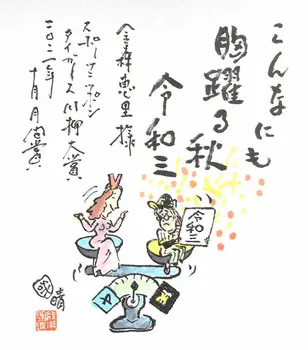 こんなにも
胸躍る秋
令和三
金森恵里様
スポーツニッポン
タイガース川柳大賞
二〇二一年
十月月間賞
令和三
晴